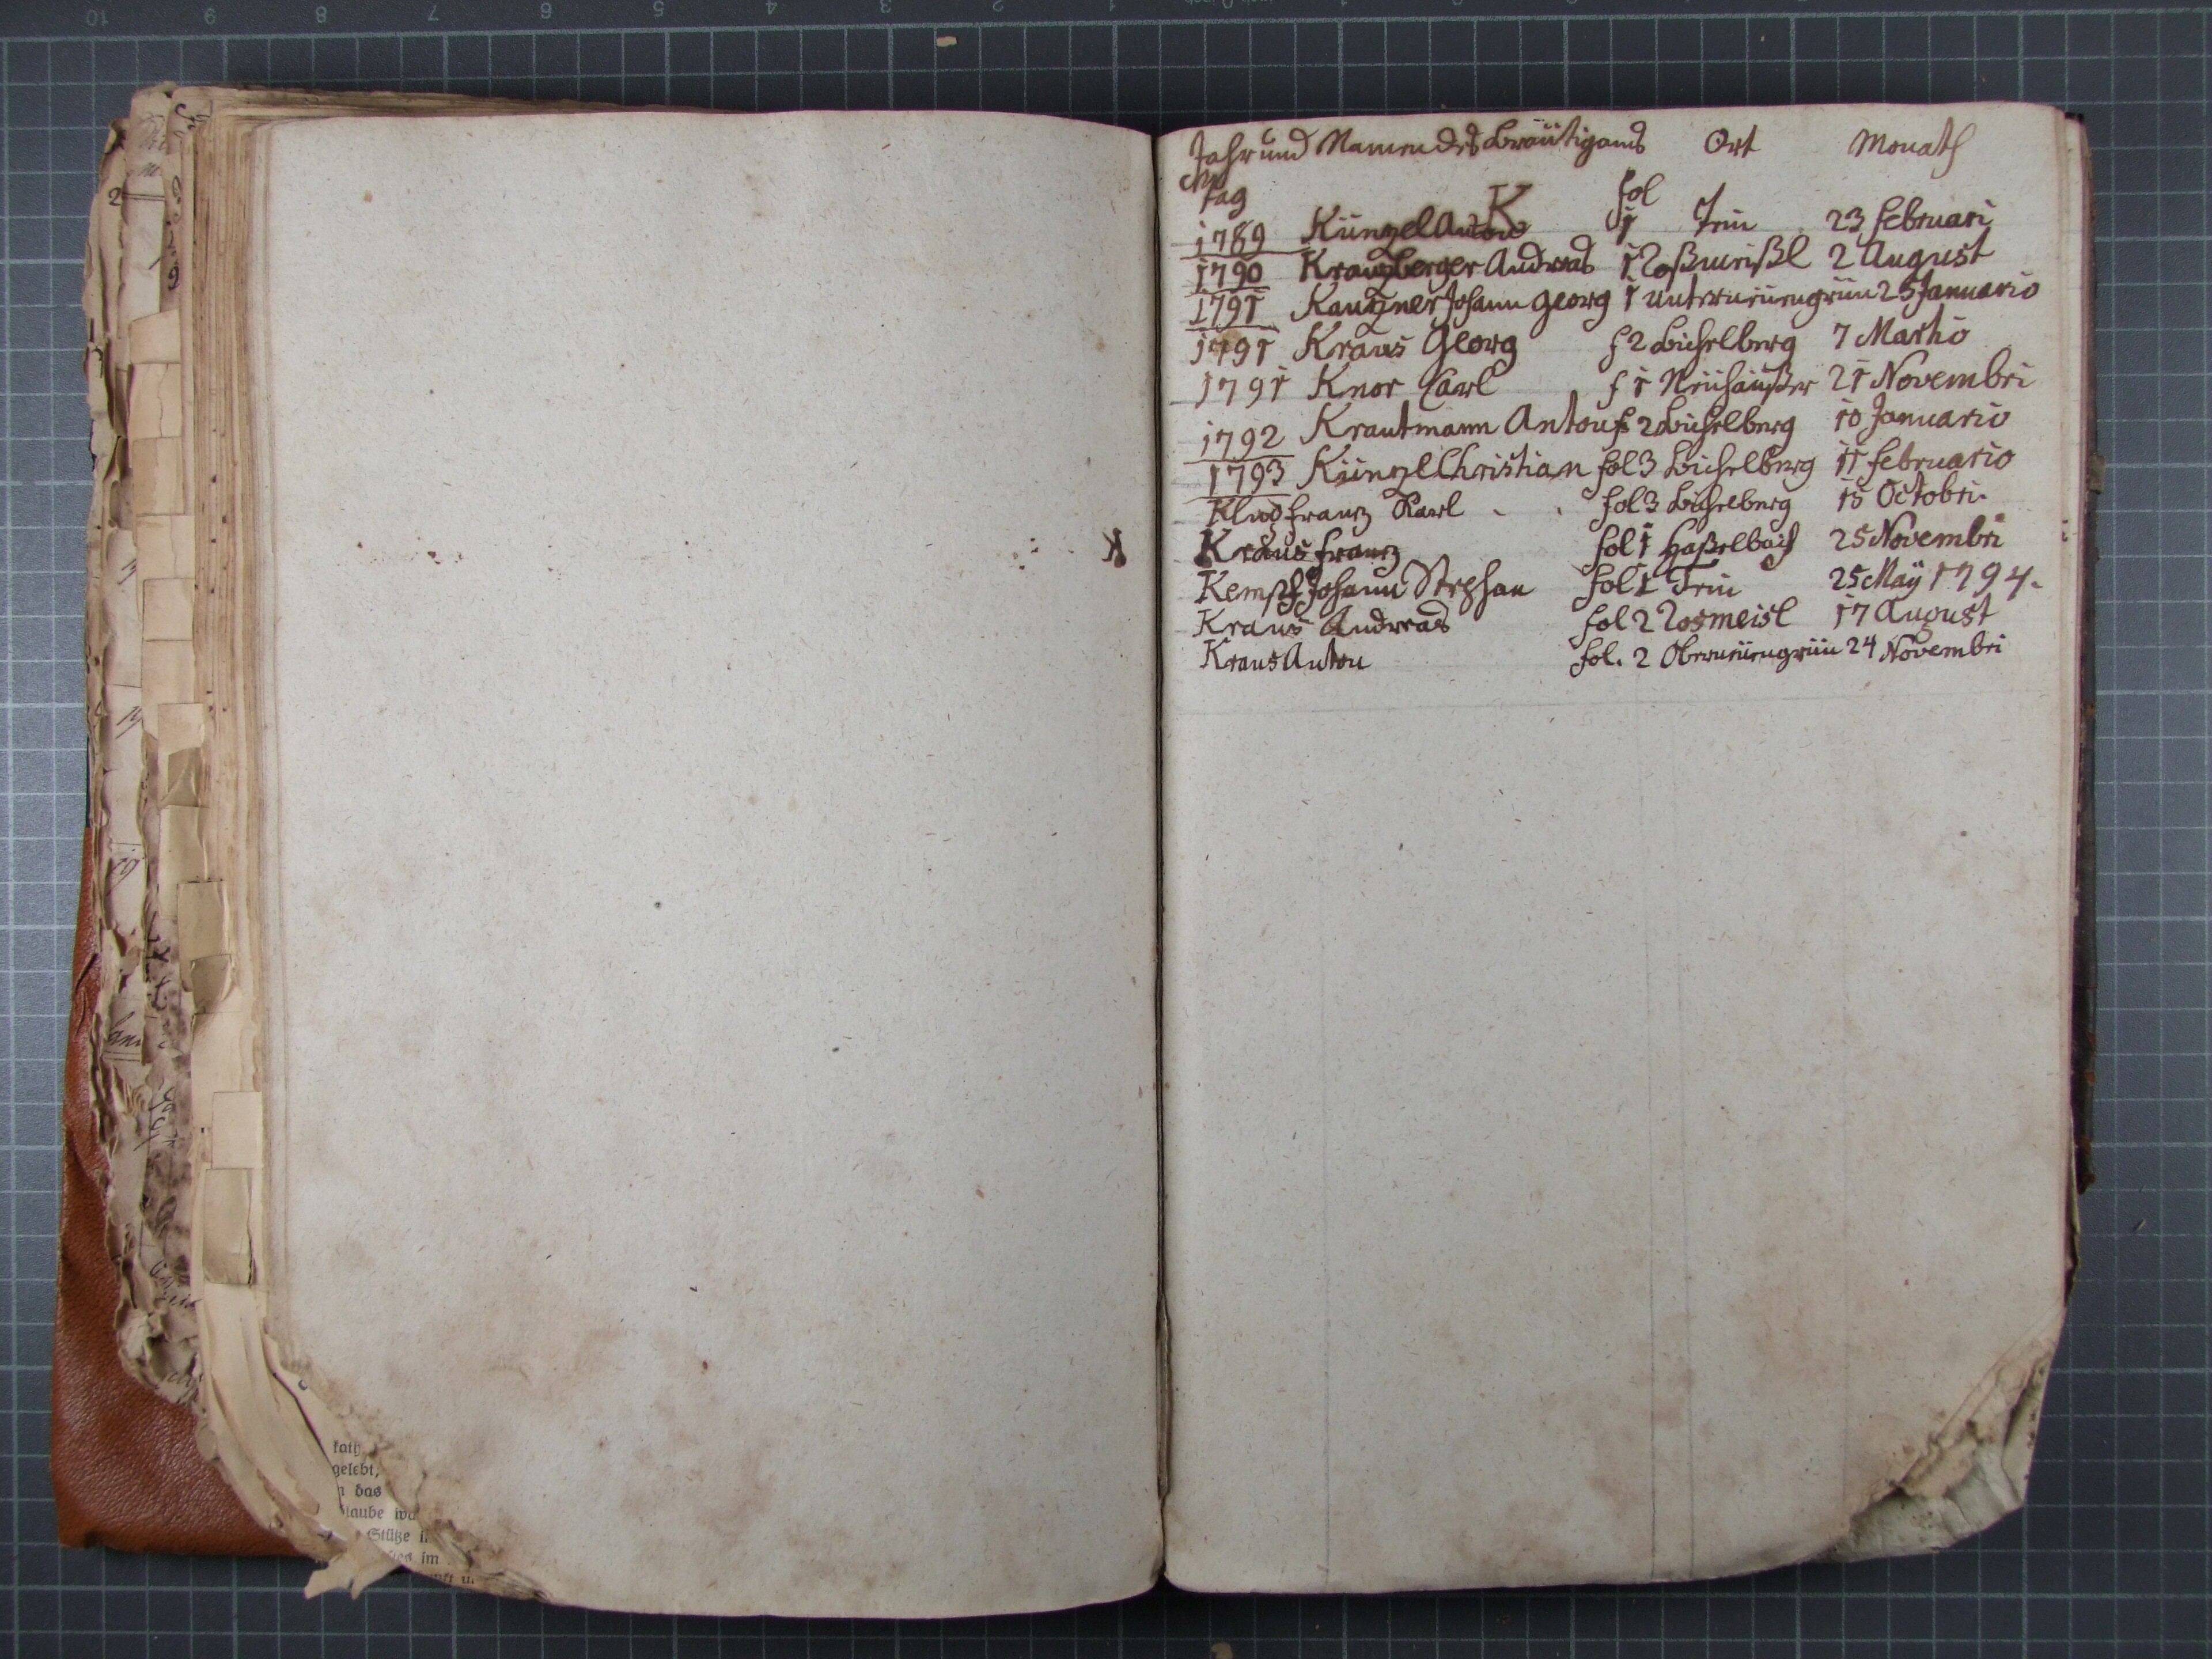 Jahr und Namen des Bräutigams Ort Monath
Tag K fol
1789 Künzel Anton 1 Trin 23 februari
1790 Kranzberger Andreas 1 Loßmeißl 2 August
1791 Kautzner Johann Georg 1 Unterneuengrün 25 Januario
1791 Kraus Georg f 2 Büchelberg 7 Martio
1791 Knor Carl f 1 Neühaüßer 21 Novembri
1792 Krautmann Anton f 2 Büchelberg 10 Januario
1793 Künzel Christian fol 3 Büchelberg 11 februario
Klug franz Karl fol 3 Büchelberg 15 Octobri
Kraus franz fol 1 Haßelbach 25 Novembri
Kempf Johann Stephan fol 1 Trin 25 Maÿ 1794.
Kraus Andreas fol 2 Losmeisl 17 August
Kraus Anton fol. 2 Oberneuengrün 24 Novembri
gelebt,
das
Stütze
im